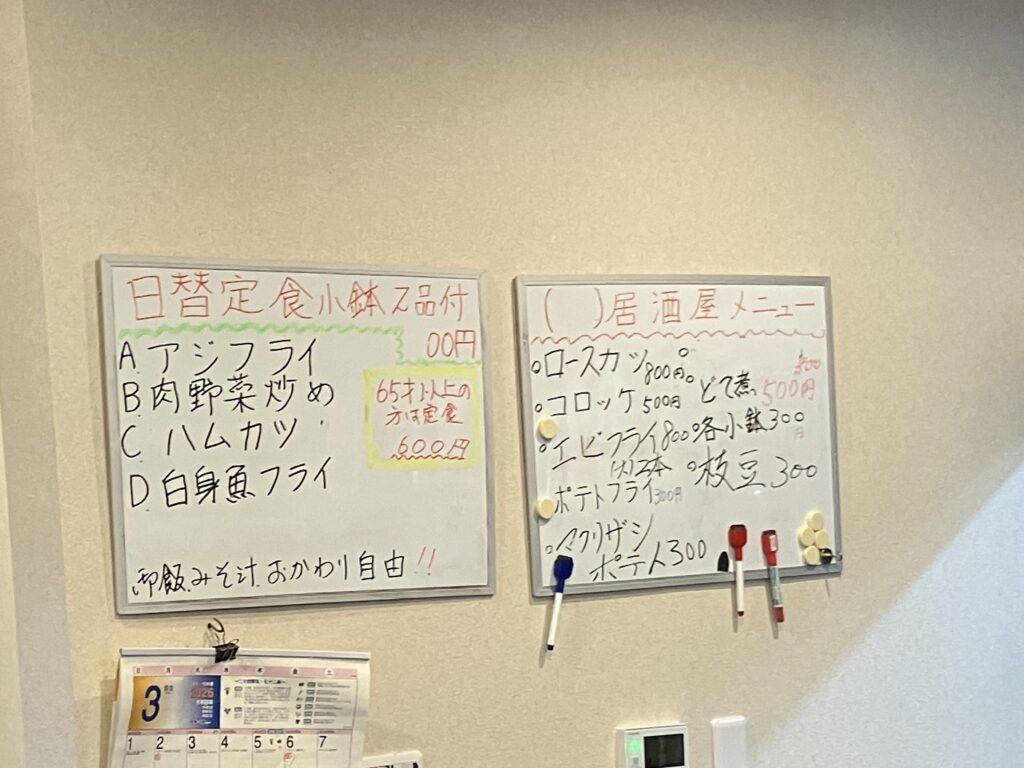 日替定食小鉢2品付
00円
A アジフライ
B 肉野菜炒め
C ハムカツ
D 白身魚フライ
65才以上の
方は定食
600円
御飯みそ汁おかわり自由!!
( )居酒屋メニュー
ロースカツ 800円
コロッケ 500円
エビフライ 800
大2本
ポテトフライ 300円
ポテト 300
どて煮 500円
各小鉢 300
円
枝豆 300
日 月 火 水 木 金 土
3
2026
1 2 3 4 5 6 7